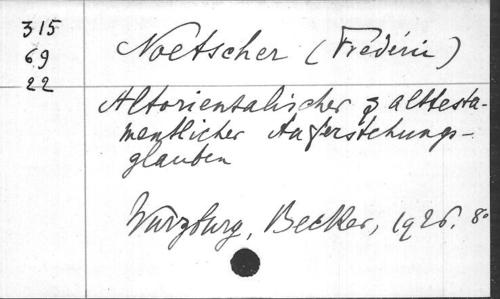 315
69
22
Noetscher (Frédéric)
Altorientalischer & alttesta-
mentlicher Auferstehungs-
glauben
Wurzburg, Becker, 1926. 8°